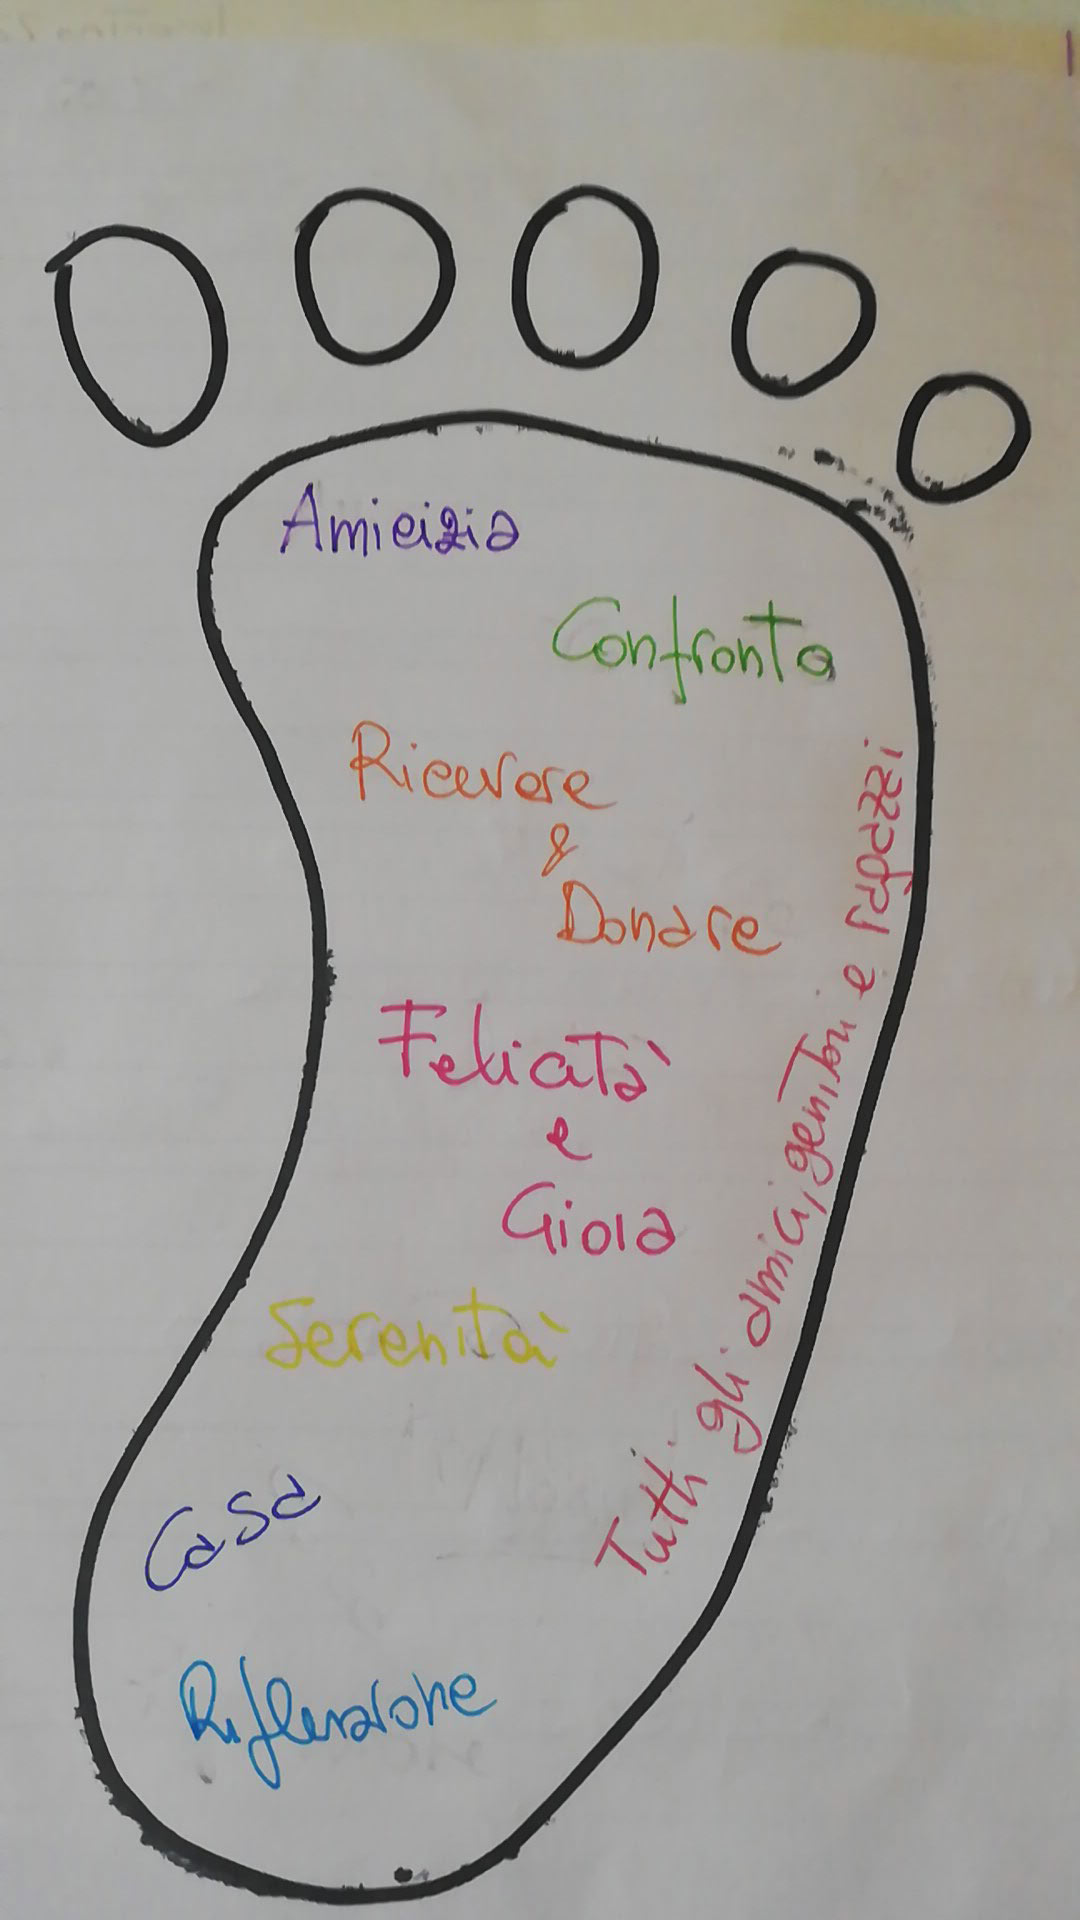 Amicizia
Confronto
Ricevere
&
Donare
Felicità
e
Gioia
Serenità
Casa
Riflessione
Tutti gli amici, genitori e ragazzi